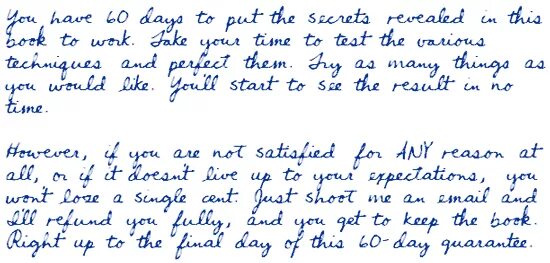 You have 60 days to put the secrets revealed in this
book to work. Take your time to test the various
techniques and perfect them. Try as many things as
you would like. You'll start to see the result in no
time.
However, if you are not satisfied for ANY reason at
all, or if it doesn't live up to your expectations, you
won't lose a single cent. Just shoot me an email and
I'll refund you fully, and you get to keep the book.
Right up to the final day of this 60-day guarantee.